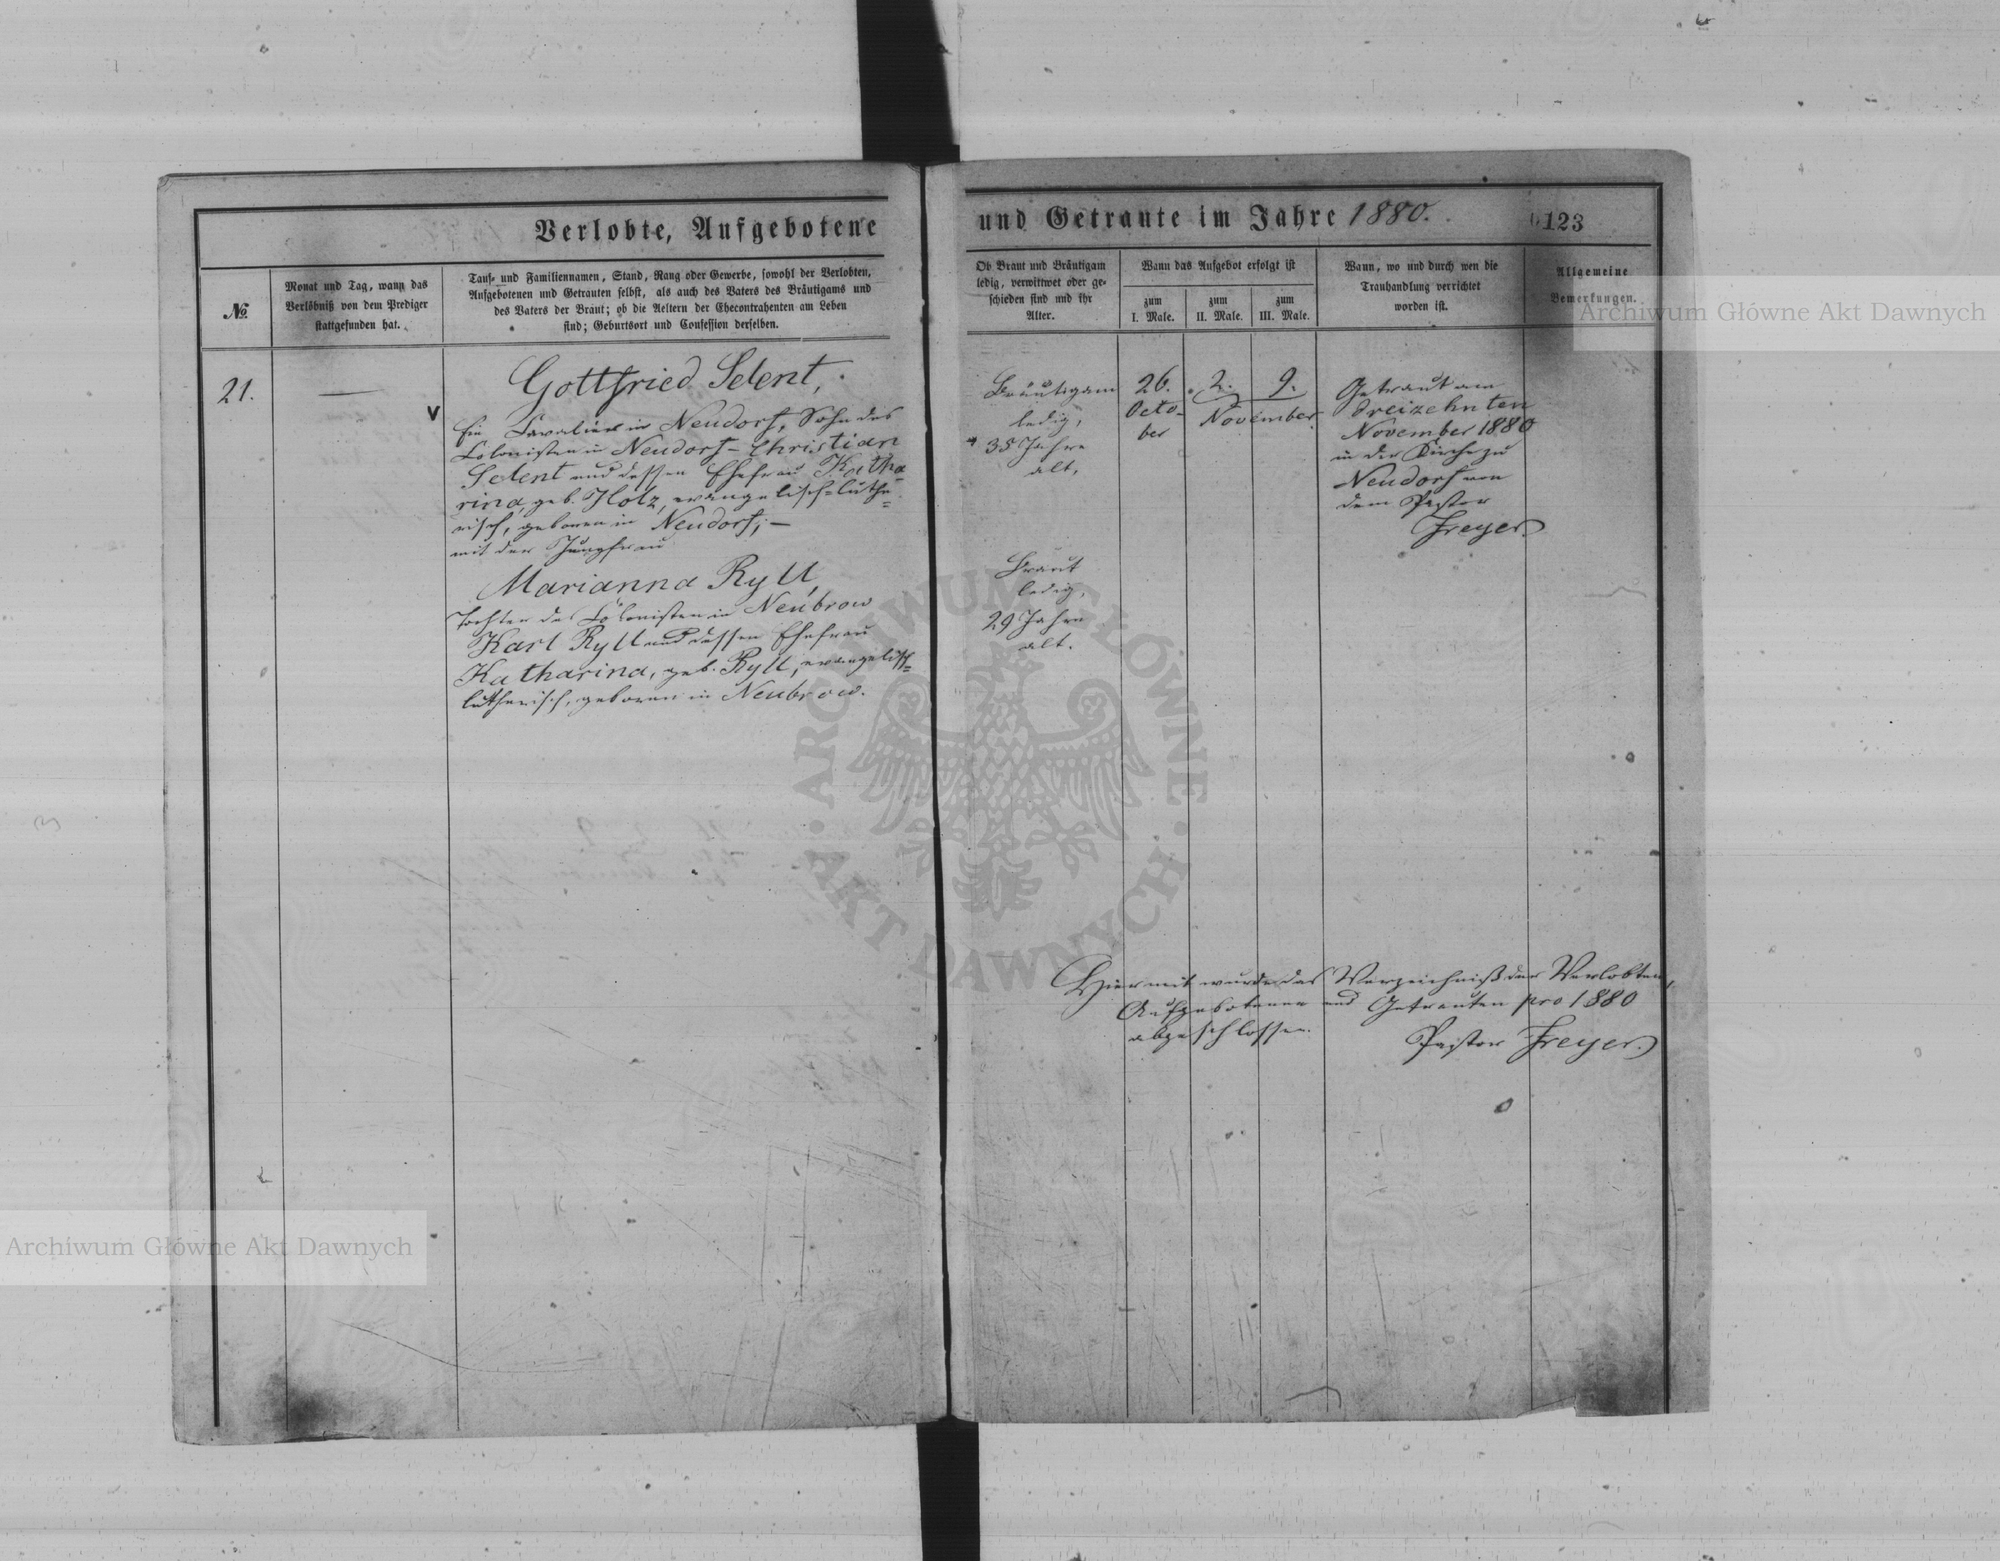 Verlobte, Aufgebotene
und Getraute im Jahre 1880.
123
№.
Monat und Tag, wann das
Verlöbniß von dem Prediger
stattgefunden hat.
Tauf- und Familiennamen, Stand, Rang oder Gewerbe, sowohl der Verlobten,
Aufgebotenen und Getrauten selbst, als auch des Vaters des Bräutigams und
des Vaters der Braut; ob die Aeltern der Ehecontrahenten am Leben
sind; Geburtsort und Confession derselben.
Ob Braut und Bräutigam
ledig, verwittwet oder ge-
schieden sind und ihr
Alter.
Wann das Aufgebot erfolgt ist
zum
I. Male.
zum
II. Male.
zum
III. Male.
Wann, wo und durch wen die
Trauhandlung verrichtet
worden ist.
Allgemeine
Bemerkungen.
21.
—
V
Gottfried Selent,
Ein in Neudorf, Sohn des
Colonisten in Neudorf - Christian
Selent und dessen Ehefrau Katha-
rina, geb. Holz, evangelisch-luthe-
risch, geboren in Neudorf; —
mit der Jungfrau
Marianna Ryll
Tochter des Colonisten in Neubrow
Karl Ryll und dessen Ehefrau
Katharina, geb. Ryll, evangelisch-
lutherisch, geboren in Neubrow.
Bräutigam
ledig,
35 Jahre
alt,
Braut
ledig,
29 Jahre
alt.
26.
Octo-
ber
2. 9.
November.
Getraut am
dreizehnten
November 1880
in der Kirche zu
Neudorf von
dem Pastor
Freyer.
Hiermit wurde das Verzeichniß der Verlobten,
Aufgebotenen und Getrauten pro 1880
abgeschlossen.
Pastor Freyer.
Archiwum Główne Akt Dawnych
Archiwum Główne Akt Dawnych
ARCHIWUM GŁÓWNE
AKT DAWNYCH